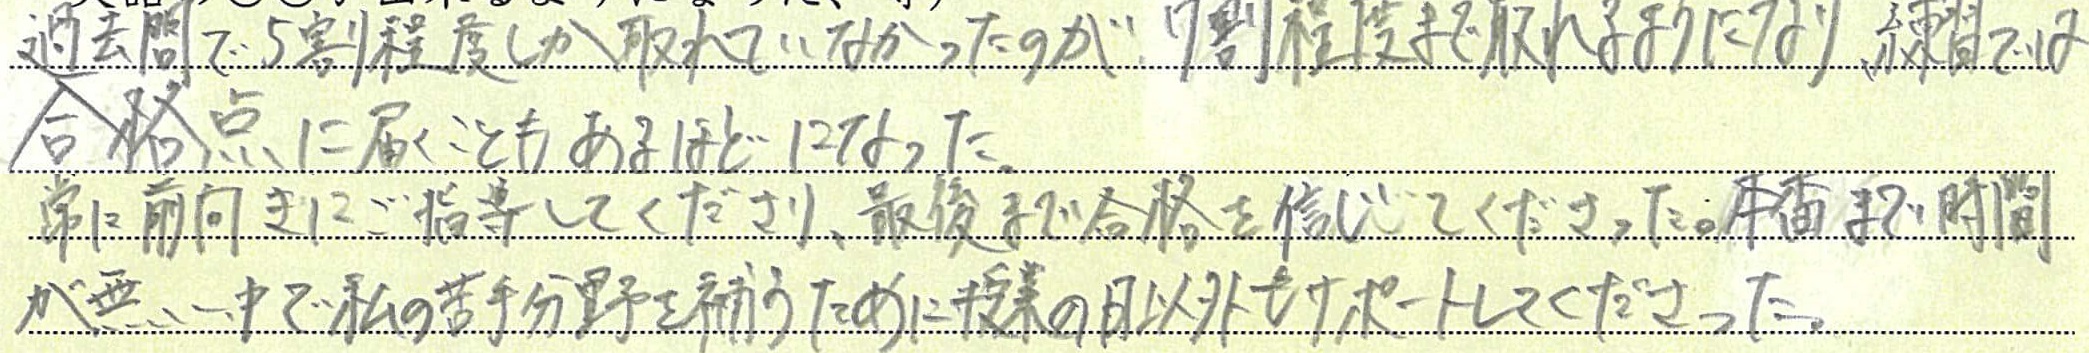 過去問で5割程度しか取れていなかったのが、7割程度まで取れるようになり、練習では
合格点に届くこともあるほどになった。
常に前向きにご指導してくださり、最後まで合格を信じてくださった。本番まで時間
が無い中で私の苦手分野を補うために授業の日以外もサポートしてくださった。